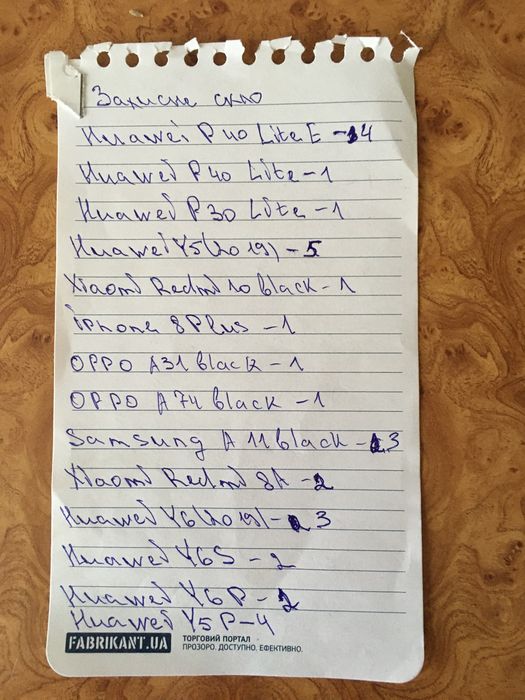 Захисне скло
Huawei P40 Lite E - 4
Huawei P40 Lite - 1
Huawei P30 Lite - 1
Huawei Y5 (2019) - 5
Xiaomi Redmi 10 black - 1
iphone 8 Plus - 1
OPPO A31 black - 1
OPPO A74 black - 1
Samsung A11 black - 3
Xiaomi Redmi 8A - 2
Huawei Y6 (2019) - 3
Huawei Y6S - 2
Huawei Y6P - 2
Huawei Y5P - 4
FABRIKANT.UA
ТОРГОВИЙ ПОРТАЛ
ПРОЗОРО. ДОСТУПНО. ЕФЕКТИВНО.